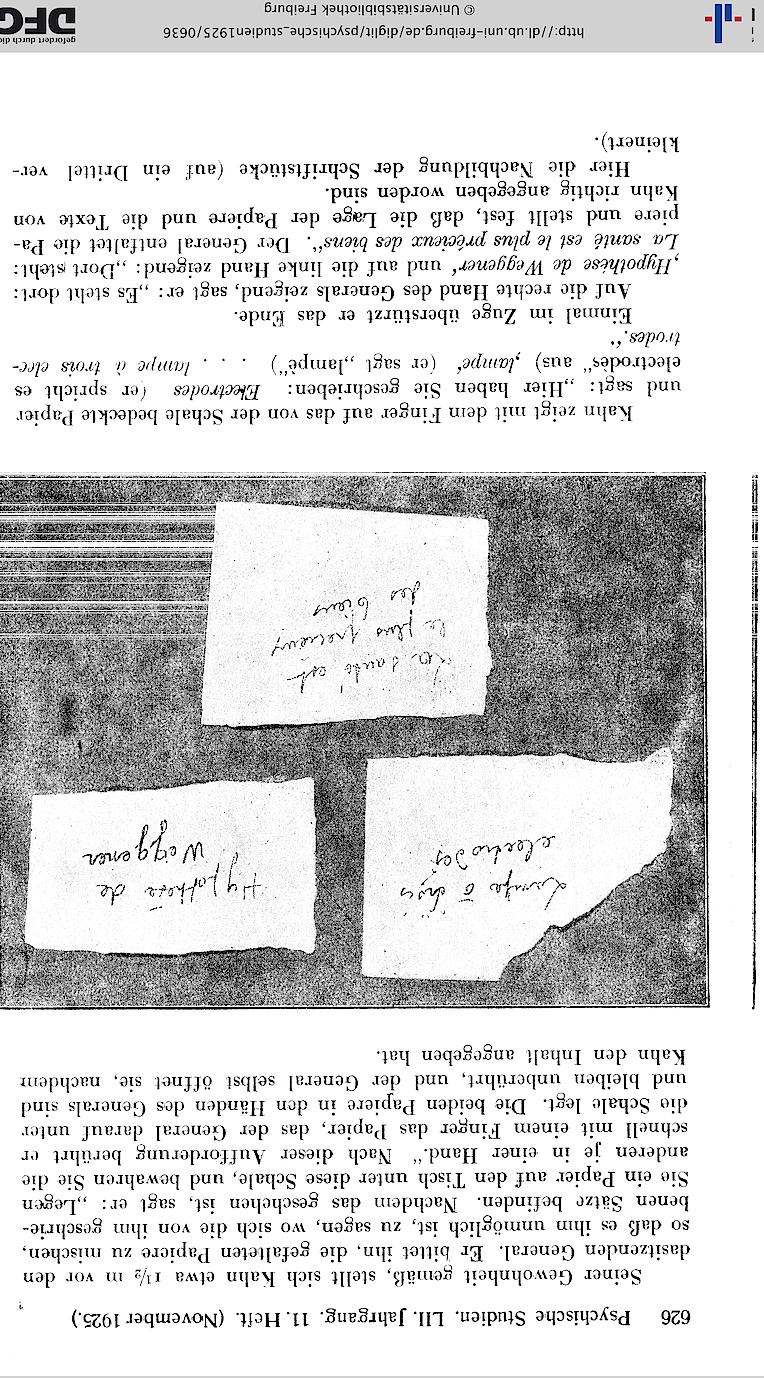 626 Psychische Studien. LII. Jahrgang. 11. Heft. (November 1925.)
Seiner Gewohnheit gemäß, stellt sich Kahn etwa 1½ m vor den
dasitzenden General. Er bittet ihn, die gefalteten Papiere zu mischen,
so daß es ihm unmöglich ist, zu sagen, wo sich die von ihm geschrie-
benen Sätze befinden. Nachdem das geschehen ist, sagt er: „Legen
Sie ein Papier auf den Tisch unter diese Schale, und bewahren Sie die
anderen je in einer Hand.“ Nach dieser Aufforderung berührt er
schnell mit einem Finger das Papier, das der General darauf unter
die Schale legt. Die beiden Papiere in den Händen des Generals sind
und bleiben unberührt, und der General selbst öffnet sie, nachdem
Kahn den Inhalt angegeben hat.
Lampe à trois
électrodes
Hypothèse de
Weggener
La santé est
le plus precieux
des biens
Kahn zeigt mit dem Finger auf das von der Schale bedeckte Papier
und sagt: „Hier haben Sie geschrieben: Electrodes (er spricht es
electrodès“ aus) ‚lampe‘ (er sagt „lampé“) . . . lampe à trois elec-
trodes.“
Einmal im Zuge überstürzt er das Ende.
Auf die rechte Hand des Generals zeigend, sagt er: „Es steht dort:
‚Hypothèse de Weggener‘ und auf die linke Hand zeigend: „Dort steht:
La santé est le plus précieux des biens“. Der General entfaltet die Pa-
piere und stellt fest, daß die Lage der Papiere und die Texte von
Kahn richtig angegeben worden sind.
Hier die Nachbildung der Schriftstücke (auf ein Drittel ver-
kleinert).
http://dl.ub.uni-freiburg.de/diglit/psychische_studien1925/0636
© Universitätsbibliothek Freiburg
gefördert durch die
DFG